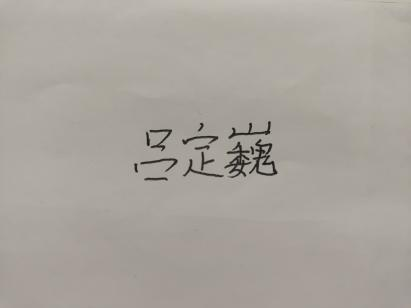 吕定巍